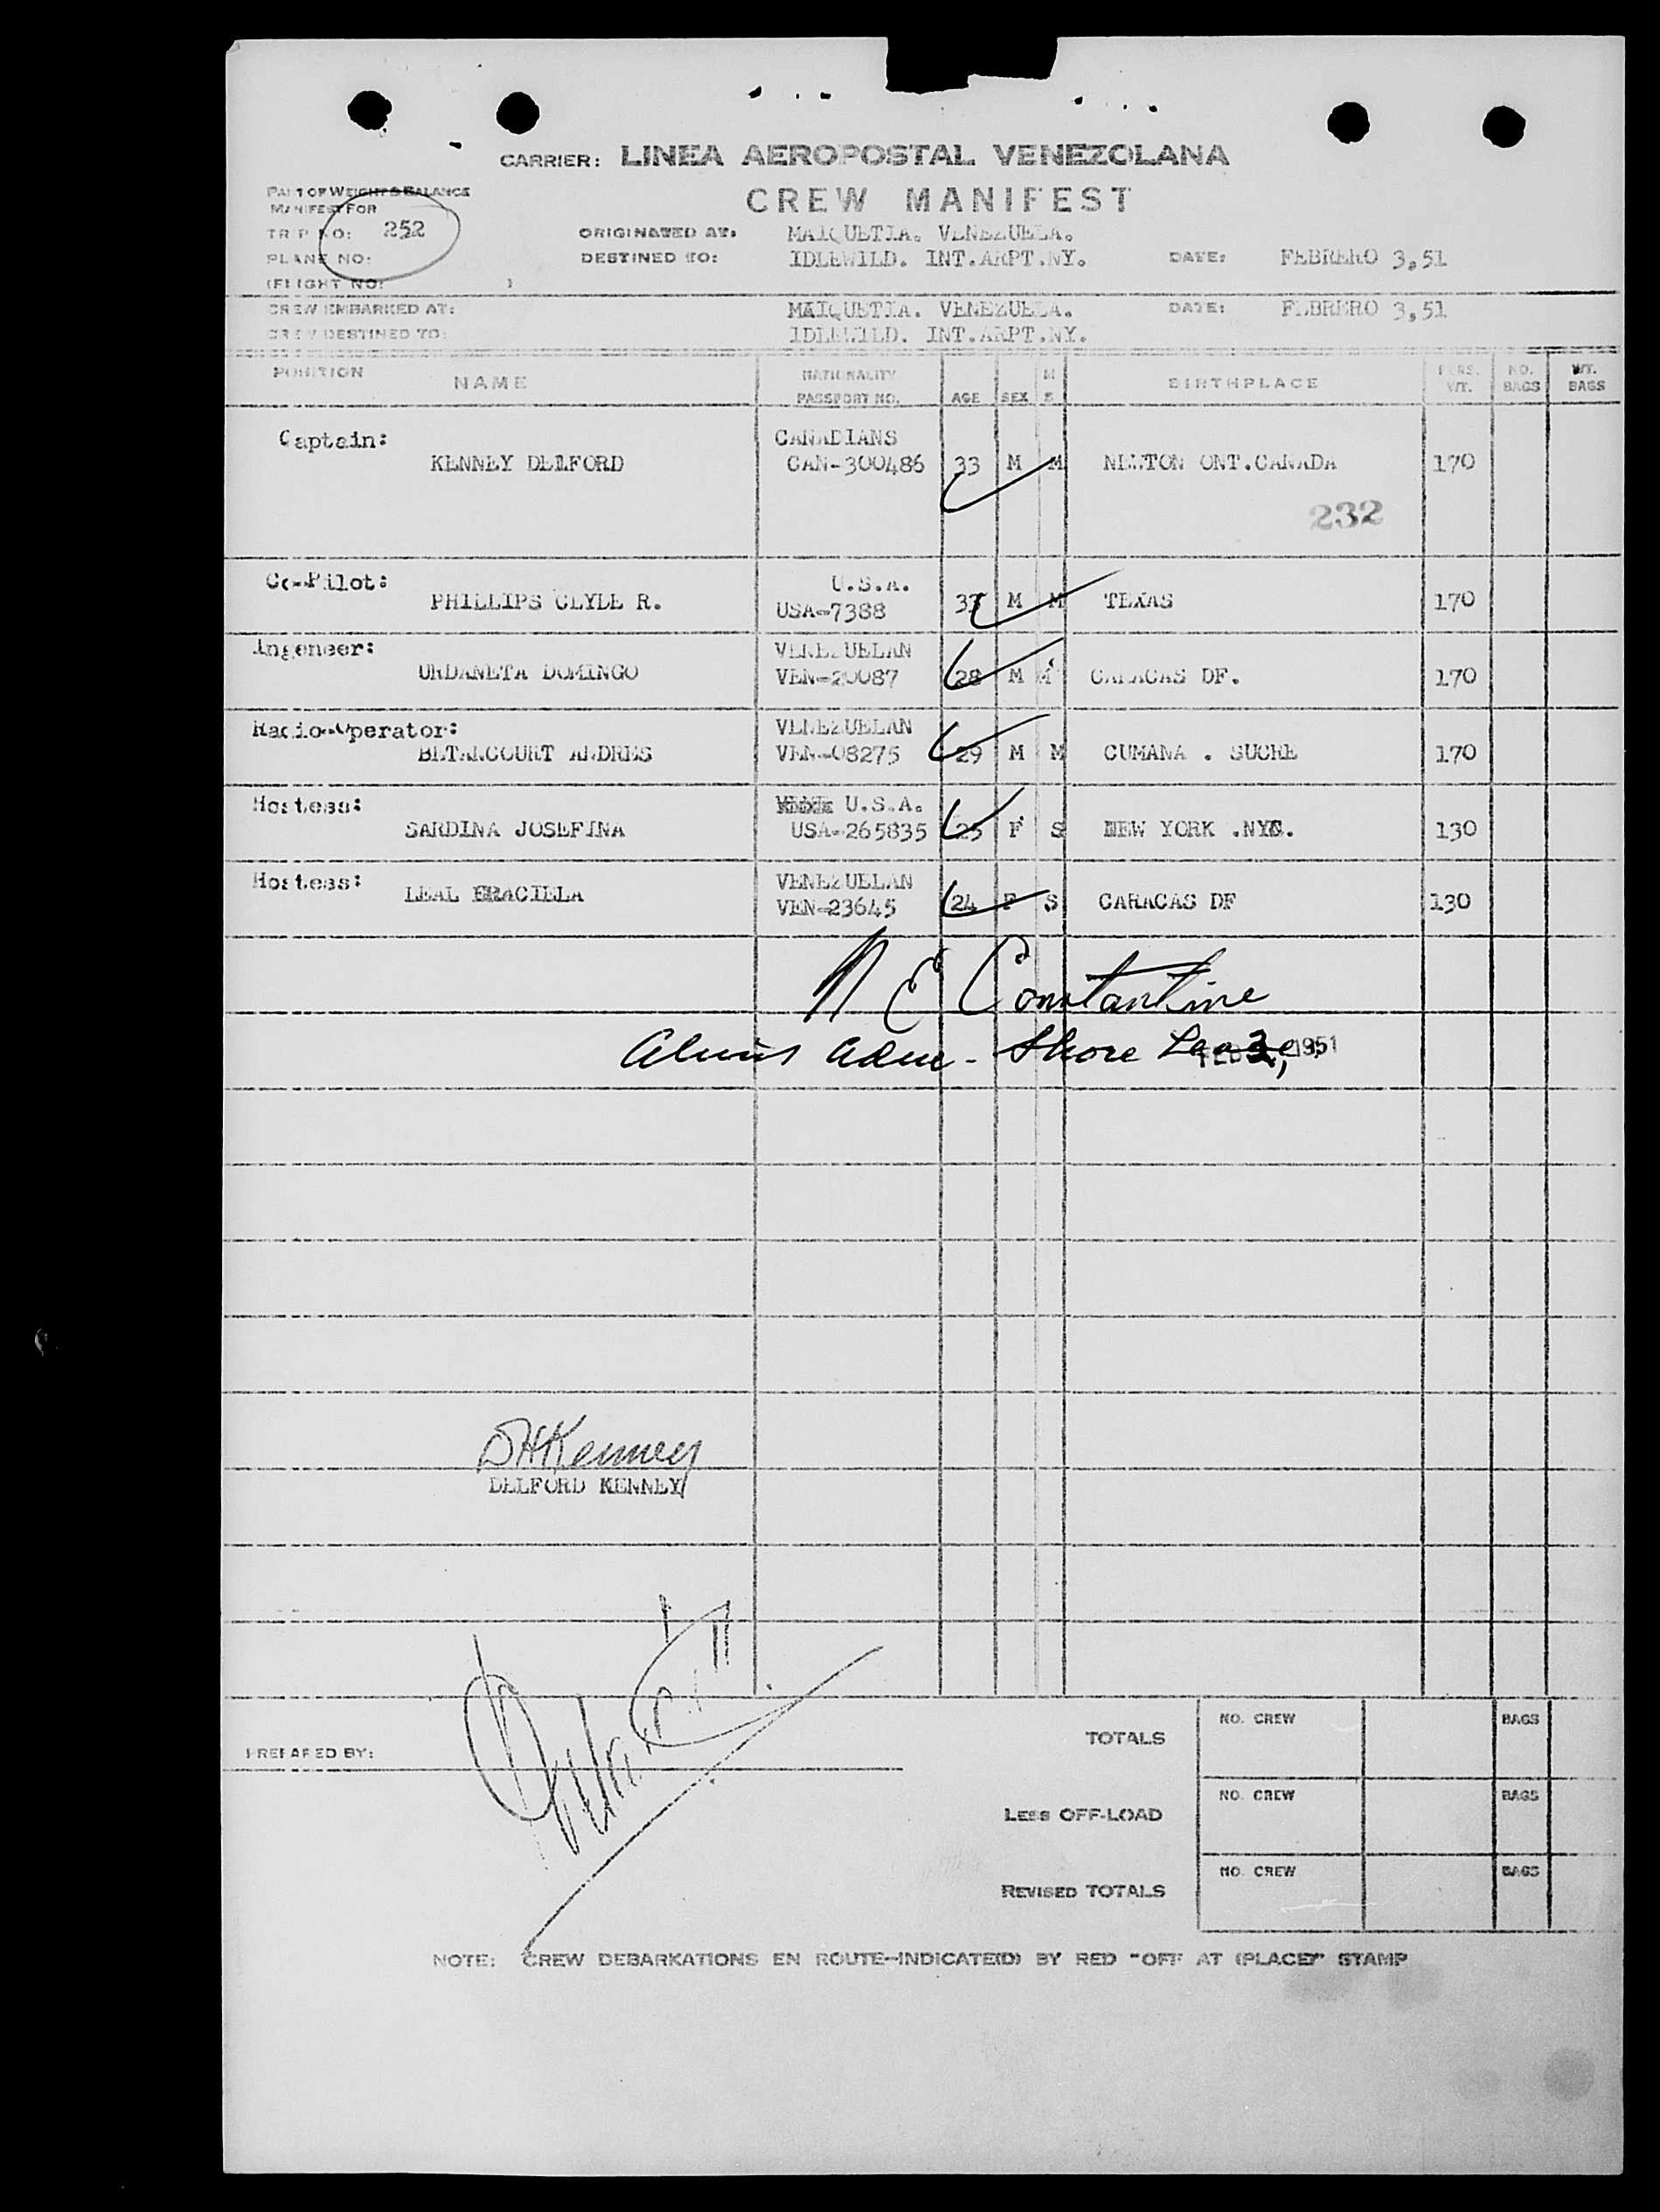 CARRIER: LINEA AEROPOSTAL VENEZOLANA
CREW MANIFEST
PART OF WEIGHT & BALANCE
MANIFEST FOR
TRIP NO: 252 ORIGINATED AT: MAIQUETIA. VENEZUELA.
PLANE NO: DESTINED TO: IDLEWILD. INT.ARPT.NY. DATE: FEBRERO 3,51
(FLIGHT NO: )
CREW EMBARKED AT: MAIQUETIA. VENEZUELA. DATE: FEBRERO 3,51
CREW DESTINED TO: IDLEWILD. INT.ARPT.NY.
POSITION NAME NATIONALITY PASSPORT NO. AGE SEX M S BIRTHPLACE PERS. WT. NO. BAGS WT. BAGS
Captain: CANADIANS
KENNEY DELFORD CAN-300486 33 M M NEWTON ONT.CANADA 170
232
Co-Pilot: U.S.A.
PHILLIPS CLYDE R. USA-7388 33 M M TEXAS 170
Ingeneer: VENEZUELAN
URDANETA DOMINGO VEN-20087 28 M M CARACAS DF. 170
Radio-Operator: VENEZUELAN
BETANCOURT ANDRES VEN-08275 29 M M CUMANA . SUCRE 170
Hostess: U.S.A.
SARDINA JOSEFINA USA-265835 25 F S NEW YORK .NYC. 130
Hostess: VENEZUELAN
LEAL GRACIELA VEN-23645 24 F S CARACAS DF 130
N E Constantine
Aliens adm - Shore Leave, FEB 3 1951
DHKenney
DELFORD KENNEY
PREPARED BY:
TOTALS NO. CREW BAGS
LESS OFF-LOAD NO. CREW BAGS
REVISED TOTALS NO. CREW BAGS
NOTE: CREW DEBARKATIONS EN ROUTE-INDICATE(D) BY RED "OFF AT (PLACE)" STAMP